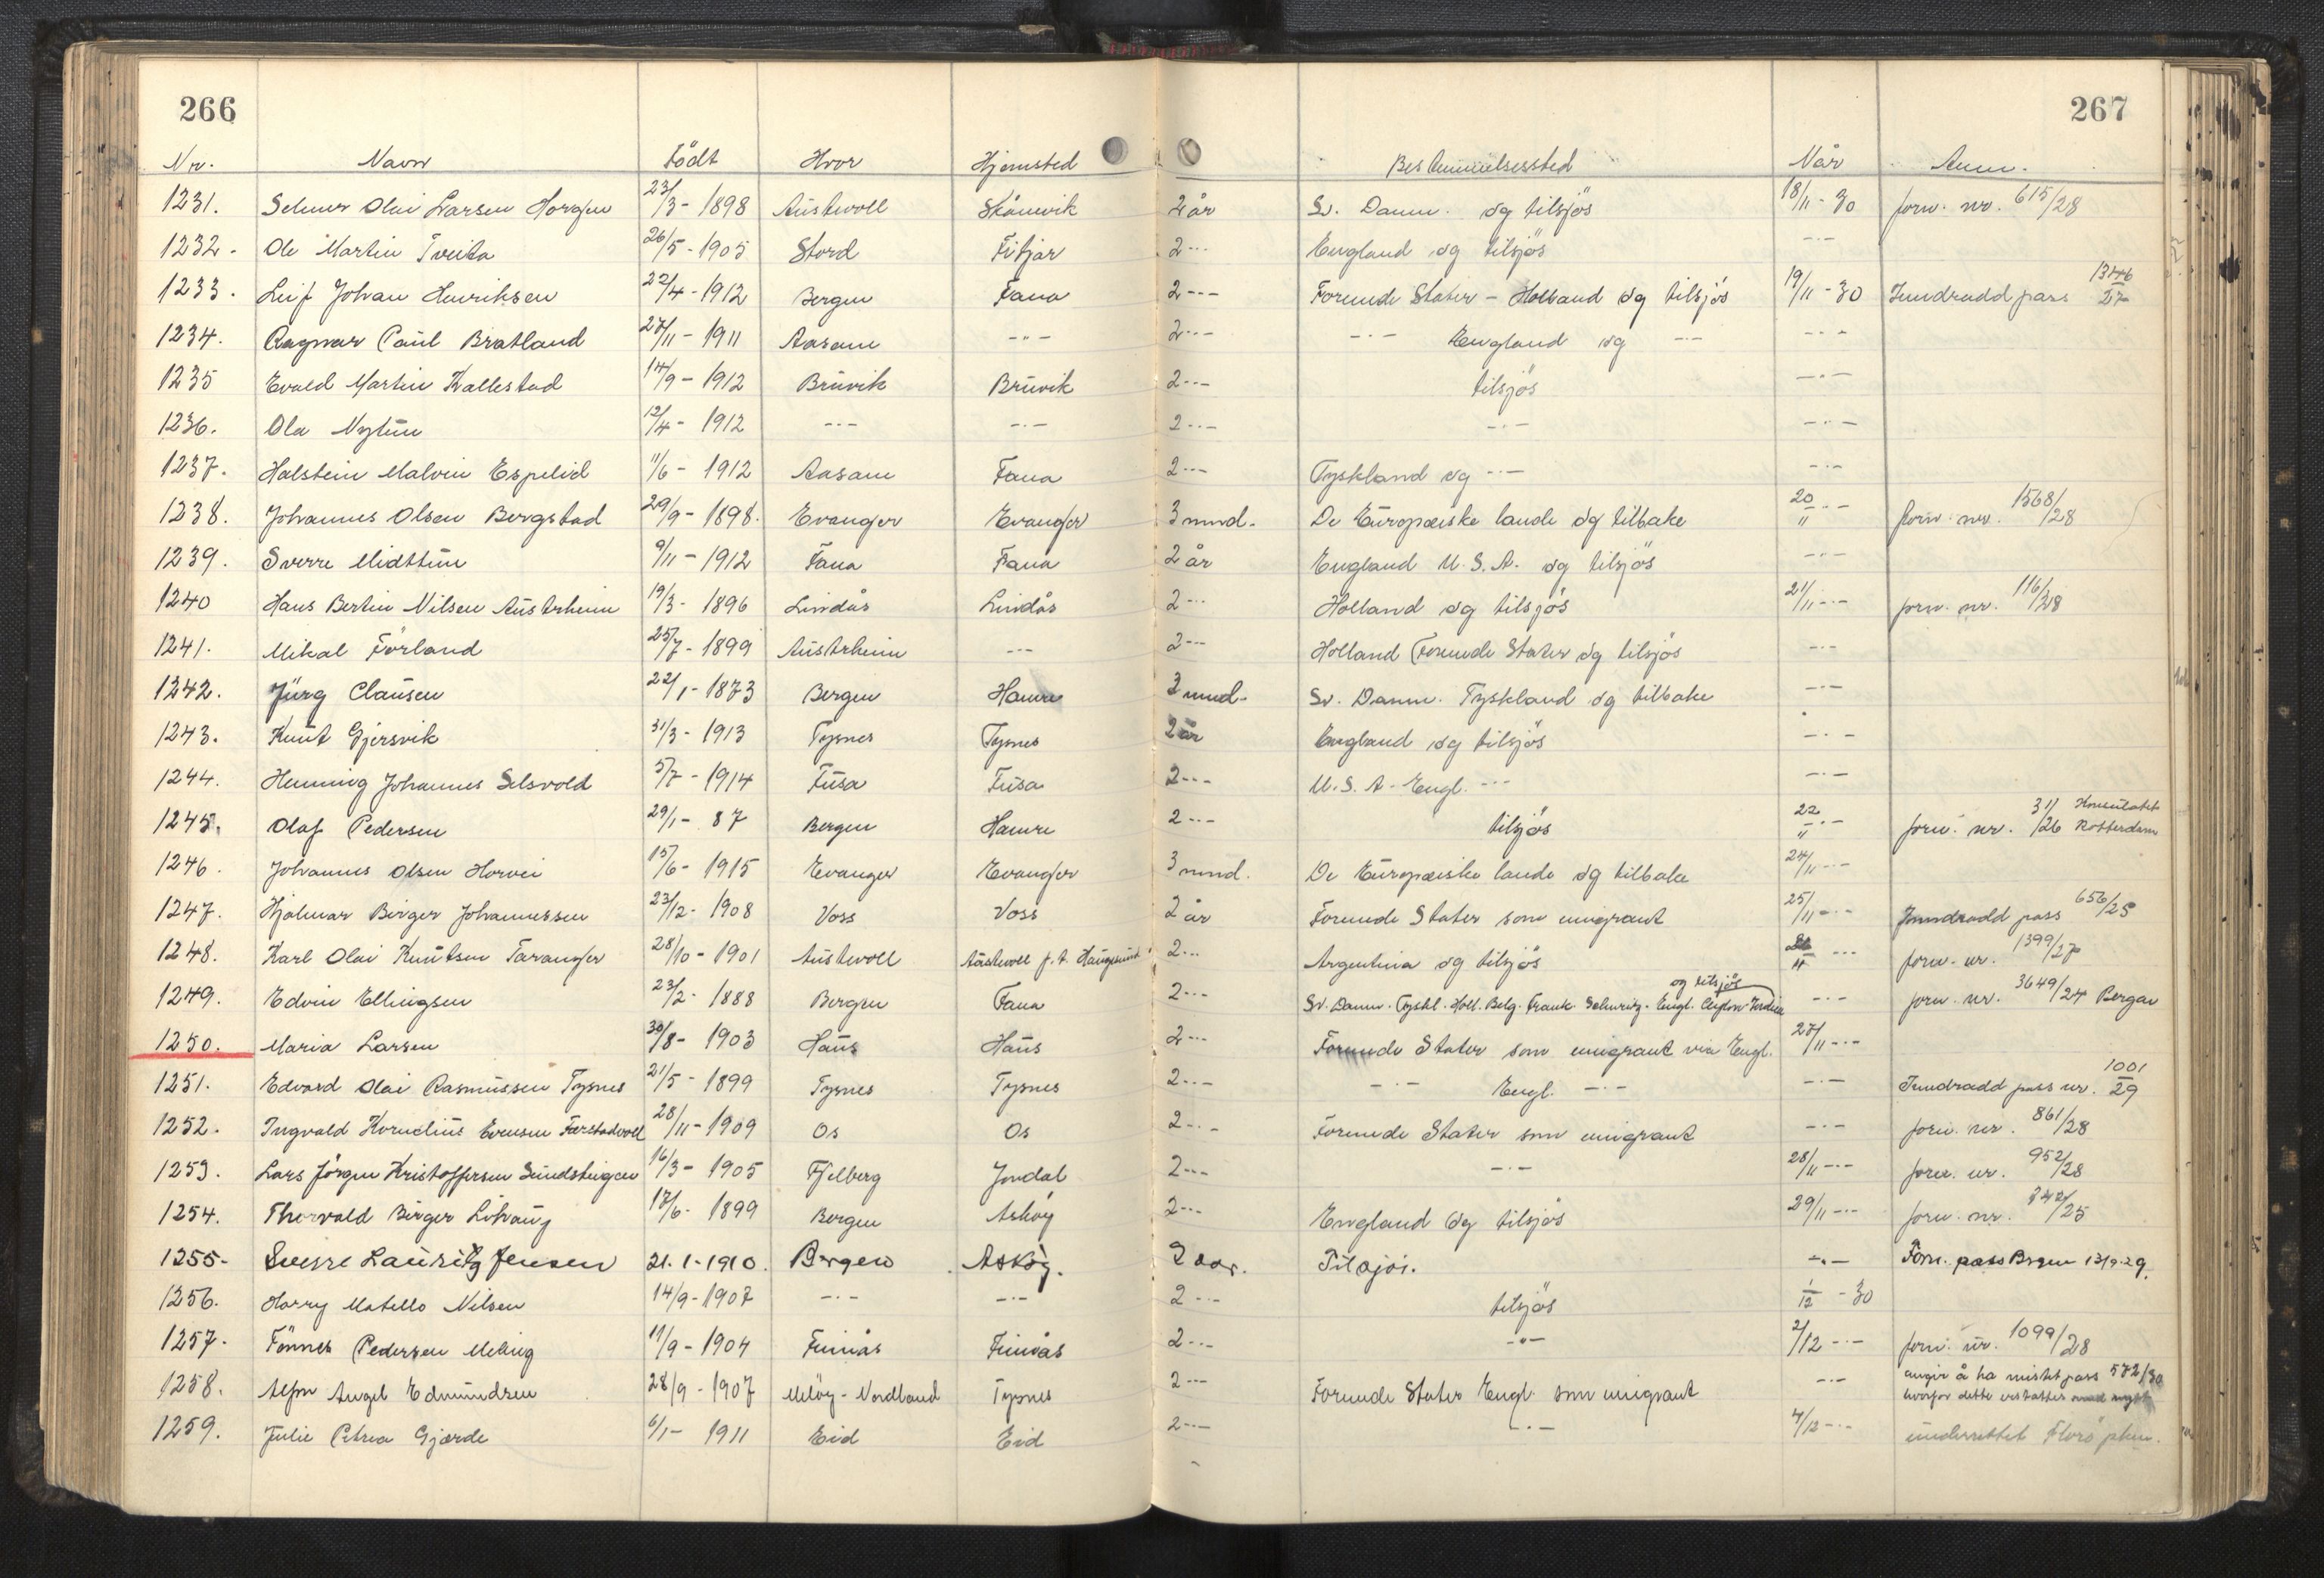 266
267
Nr. Navn Født Hvor Hjemsted Bestemmelsessted Når Anm.
1231. Selmer Olai Larsen Horgen 23/3 - 1898 Austevoll Skånevik 2 år Sv. Danm. og tilsjös 18/11 - 30 forn. nr. 615/28
1232. Ole Martin Tveita 26/5 - 1905 Stord Fitjar 2 -"- England og tilsjös -"-
1233. Leif Johan Henriksen 22/4 - 1912 Bergen Fana 2 -"- Forende Stater - Holland og tilsjös 19/11 - 30 Inndradd pass 27
1234. Ragnar Paul Bratland 27/11 - 1911 Aasane -"- 2 -"- -"- England og -"- -"-
1235 Evald Martin Kallestad 14/9 - 1912 Bruvik Bruvik 2 -"- tilsjös -"-
1236. Ola Nytun 12/4 - 1912 -"- -"- 2 -"- -"- -"-
1237. Halstein Malvin Espelid 11/6 - 1912 Aasane Fana 2 -"- Tyskland og -"- -"-
1238. Johannes Olsen Bergstad 29/9 - 1898. Evanger Evanger 3 mnd. De Europæiske lande og tilbake 20/11 -"- forn. nr. 1568/28
1239. Sverre Midttun 9/11 - 1912 Fana Fana 2 år England U.S.A. og tilsjös -"-
1240 Hans Bertin Nilsen Austrheim 19/3 - 1896 Lindås Lindås 2 -"- Holland og tilsjös 21/11 -"- forn. nr. 116/28
1241. Mikal Förland 25/7 - 1899 Austrheim -"- 2 -"- Holland Forende Stater og tilsjös -"-
1242. Jürg Clausen 22/1 - 1873 Bergen Hamre 3 mnd. Sv. Danm. Tyskland og tilbake -"-
1243. Knut Gjersvik 31/3 - 1913 Tysnes Tysnes 2 år England og tilsjös -"-
1244. Henning Johannes Selsvold 5/7 - 1914 Fusa Fusa 2 -"- U.S.A - Engl. -"- -"-
1245. Olaf Pedersen 29/1 - 87 Bergen Hamre 2 -"- tilsjös 22/11 -"- forn. nr. 31/26 Konsulatet Rotterdam
1246. Johannes Olsen Horvei 15/6 - 1915 Evanger Evanger 3 mnd. De Europæiske lande og tilbake 24/11 -"-
1247. Hjalmar Birger Johannessen 23/12 - 1908 Voss Voss 2 år Forende Stater som emigrant 25/11 -"- Inndradd pass 656/25
1248. Karl Olai Knutsen Taranger 28/10 - 1901 Austevoll Austevoll p.t. Haugesund 2 -"- Argentina og tilsjös -"- forn. nr. 1399/27
1249. Edvin Ellingsen 23/2 - 1888 Bergen Fana 2 -"- Sv. Danm. Tyskl. Holl. Belg. Frank. Schweitz. Engl. Ceylon Indien og tilsjös -"- forn. nr. 3649/24 Bergen
1250. Maria Larsen 30/8 - 1903 Haus Haus 2 -"- Forende Stater som emigrant via Engl. 27/11 -"-
1251. Edvard Olai Rasmussen Tysnes 21/5 - 1899 Tysnes Tysnes 2 -"- -"- Engl. -"- -"- Inndradd pass nr. 1001/29
1252. Ingvald Kornelius Evensen Færstadvoll 28/11 - 1909 Os Os 2 -"- Forende Stater som emigrant -"- forn. nr. 861/28
1253. Lars Jörgen Kristoffersen Sundsteigen 16/3 - 1905 Fjelberg Jondal 2 -"- -"- 28/11 -"- forn. nr. 952/28
1254. Thorvald Birger Lihaug 17/6 - 1899 Bergen Asköy 2 -"- England og tilsjös 29/11 -"- forn. nr. 25
1255- Sverre Lauritz Jensen 21.1-1910. Bergen Asköy. 2 aar. Tilsjös. -"- Forn. pass Bergen 13/9-29.
1256. Harry Matello Nilsen 14/9 - 1907 -"- -"- 2 -"- tilsjös 1/12 - 30
1257. Fönnes Pedersen Meling 11/9 - 1904 Finnås Finnås 2 -"- -"- 2/12 -"- forn. nr. 1099/28
1258. Alfon Angel Edmundsen 28/9 - 1907 Melöy - Nordland Tysnes 2 -"- Forende Stater Engl. som emigrant -"- angir å ha mistet pass 572/30 hvorfor dette erstattes med nytt
1259. Julie Petrea Gjærde 6/1 - 1911 Eid Eid 2 -"- -"- 4/12 -"- underrettet Florö